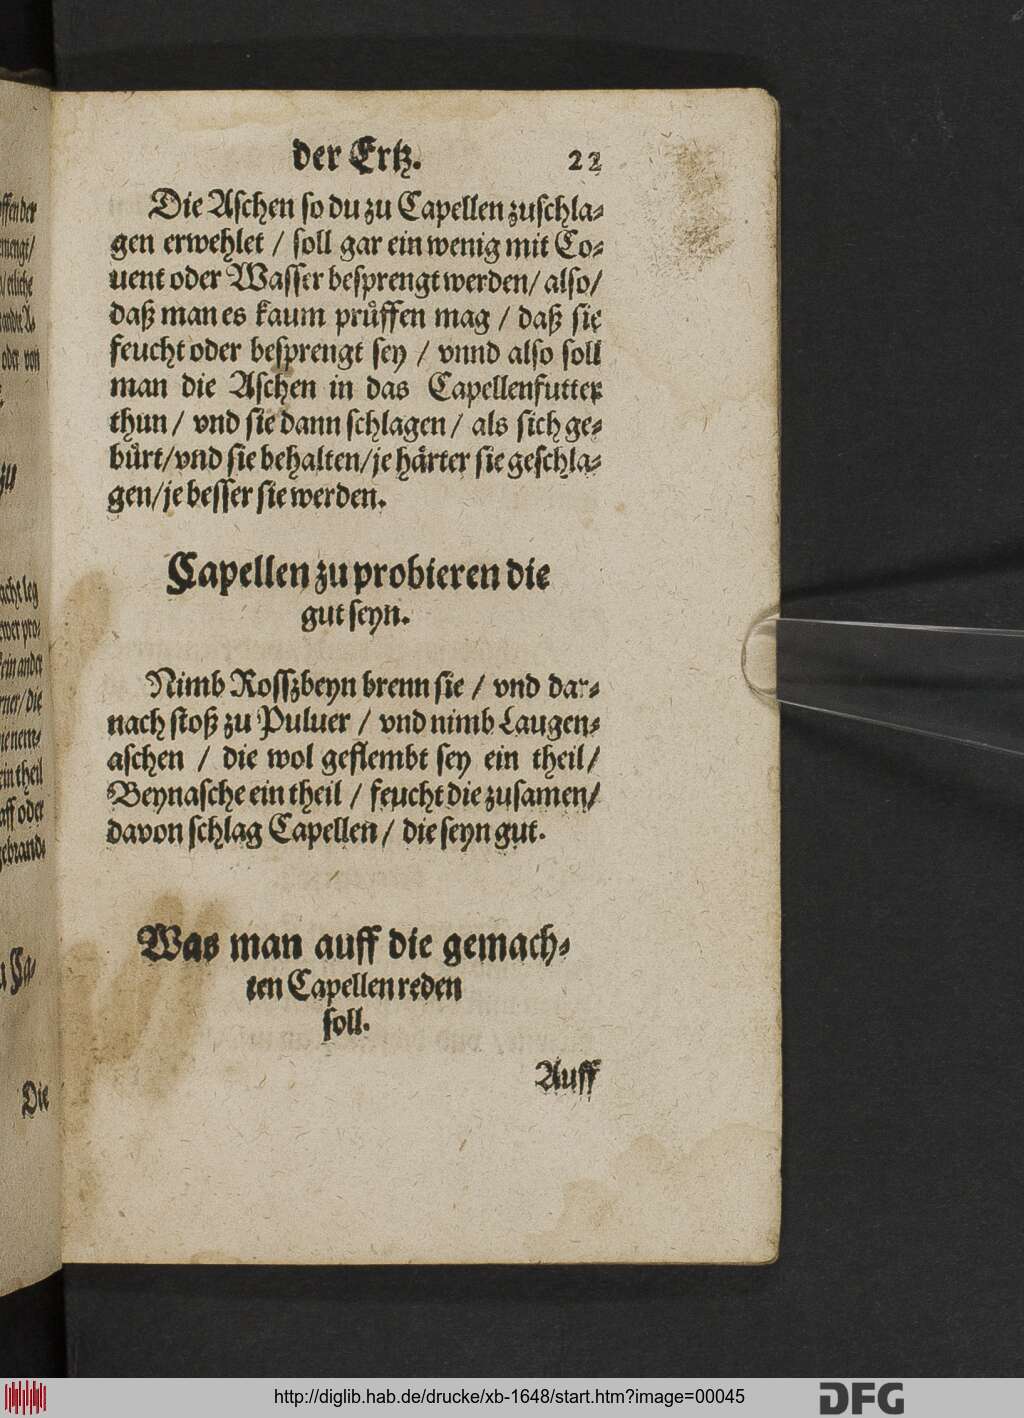 der Ertz. 22
Die Aschen so du zu Capellen zuschla⸗
gen erwehlet / soll gar ein wenig mit Co⸗
uent oder Wasser besprengt werden / also /
daß man es kaum pruͤffen mag / daß sie
feucht oder besprengt sey / vnnd also soll
man die Aschen in das Capellenfutter
thun / vnd sie dann schlagen / als sich ge⸗
buͤrt / vnd sie behalten / je haͤrter sie geschla⸗
gen / je besser sie werden.
Capellen zu probieren die
gut seyn.
Nimb Rosszbeyn brenn sie / vnd dar⸗
nach stoß zu Puluer / vnd nimb Laugen⸗
aschen / die wol geflembt sey ein theil /
Beynasche ein theil / feucht die zusamen /
davon schlag Capellen / die seyn gut.
Was man auff die gemach⸗
ten Capellen reden
soll.
Auff
Die
http://diglib.hab.de/drucke/xb-1648/start.htm?image=00045
DFG